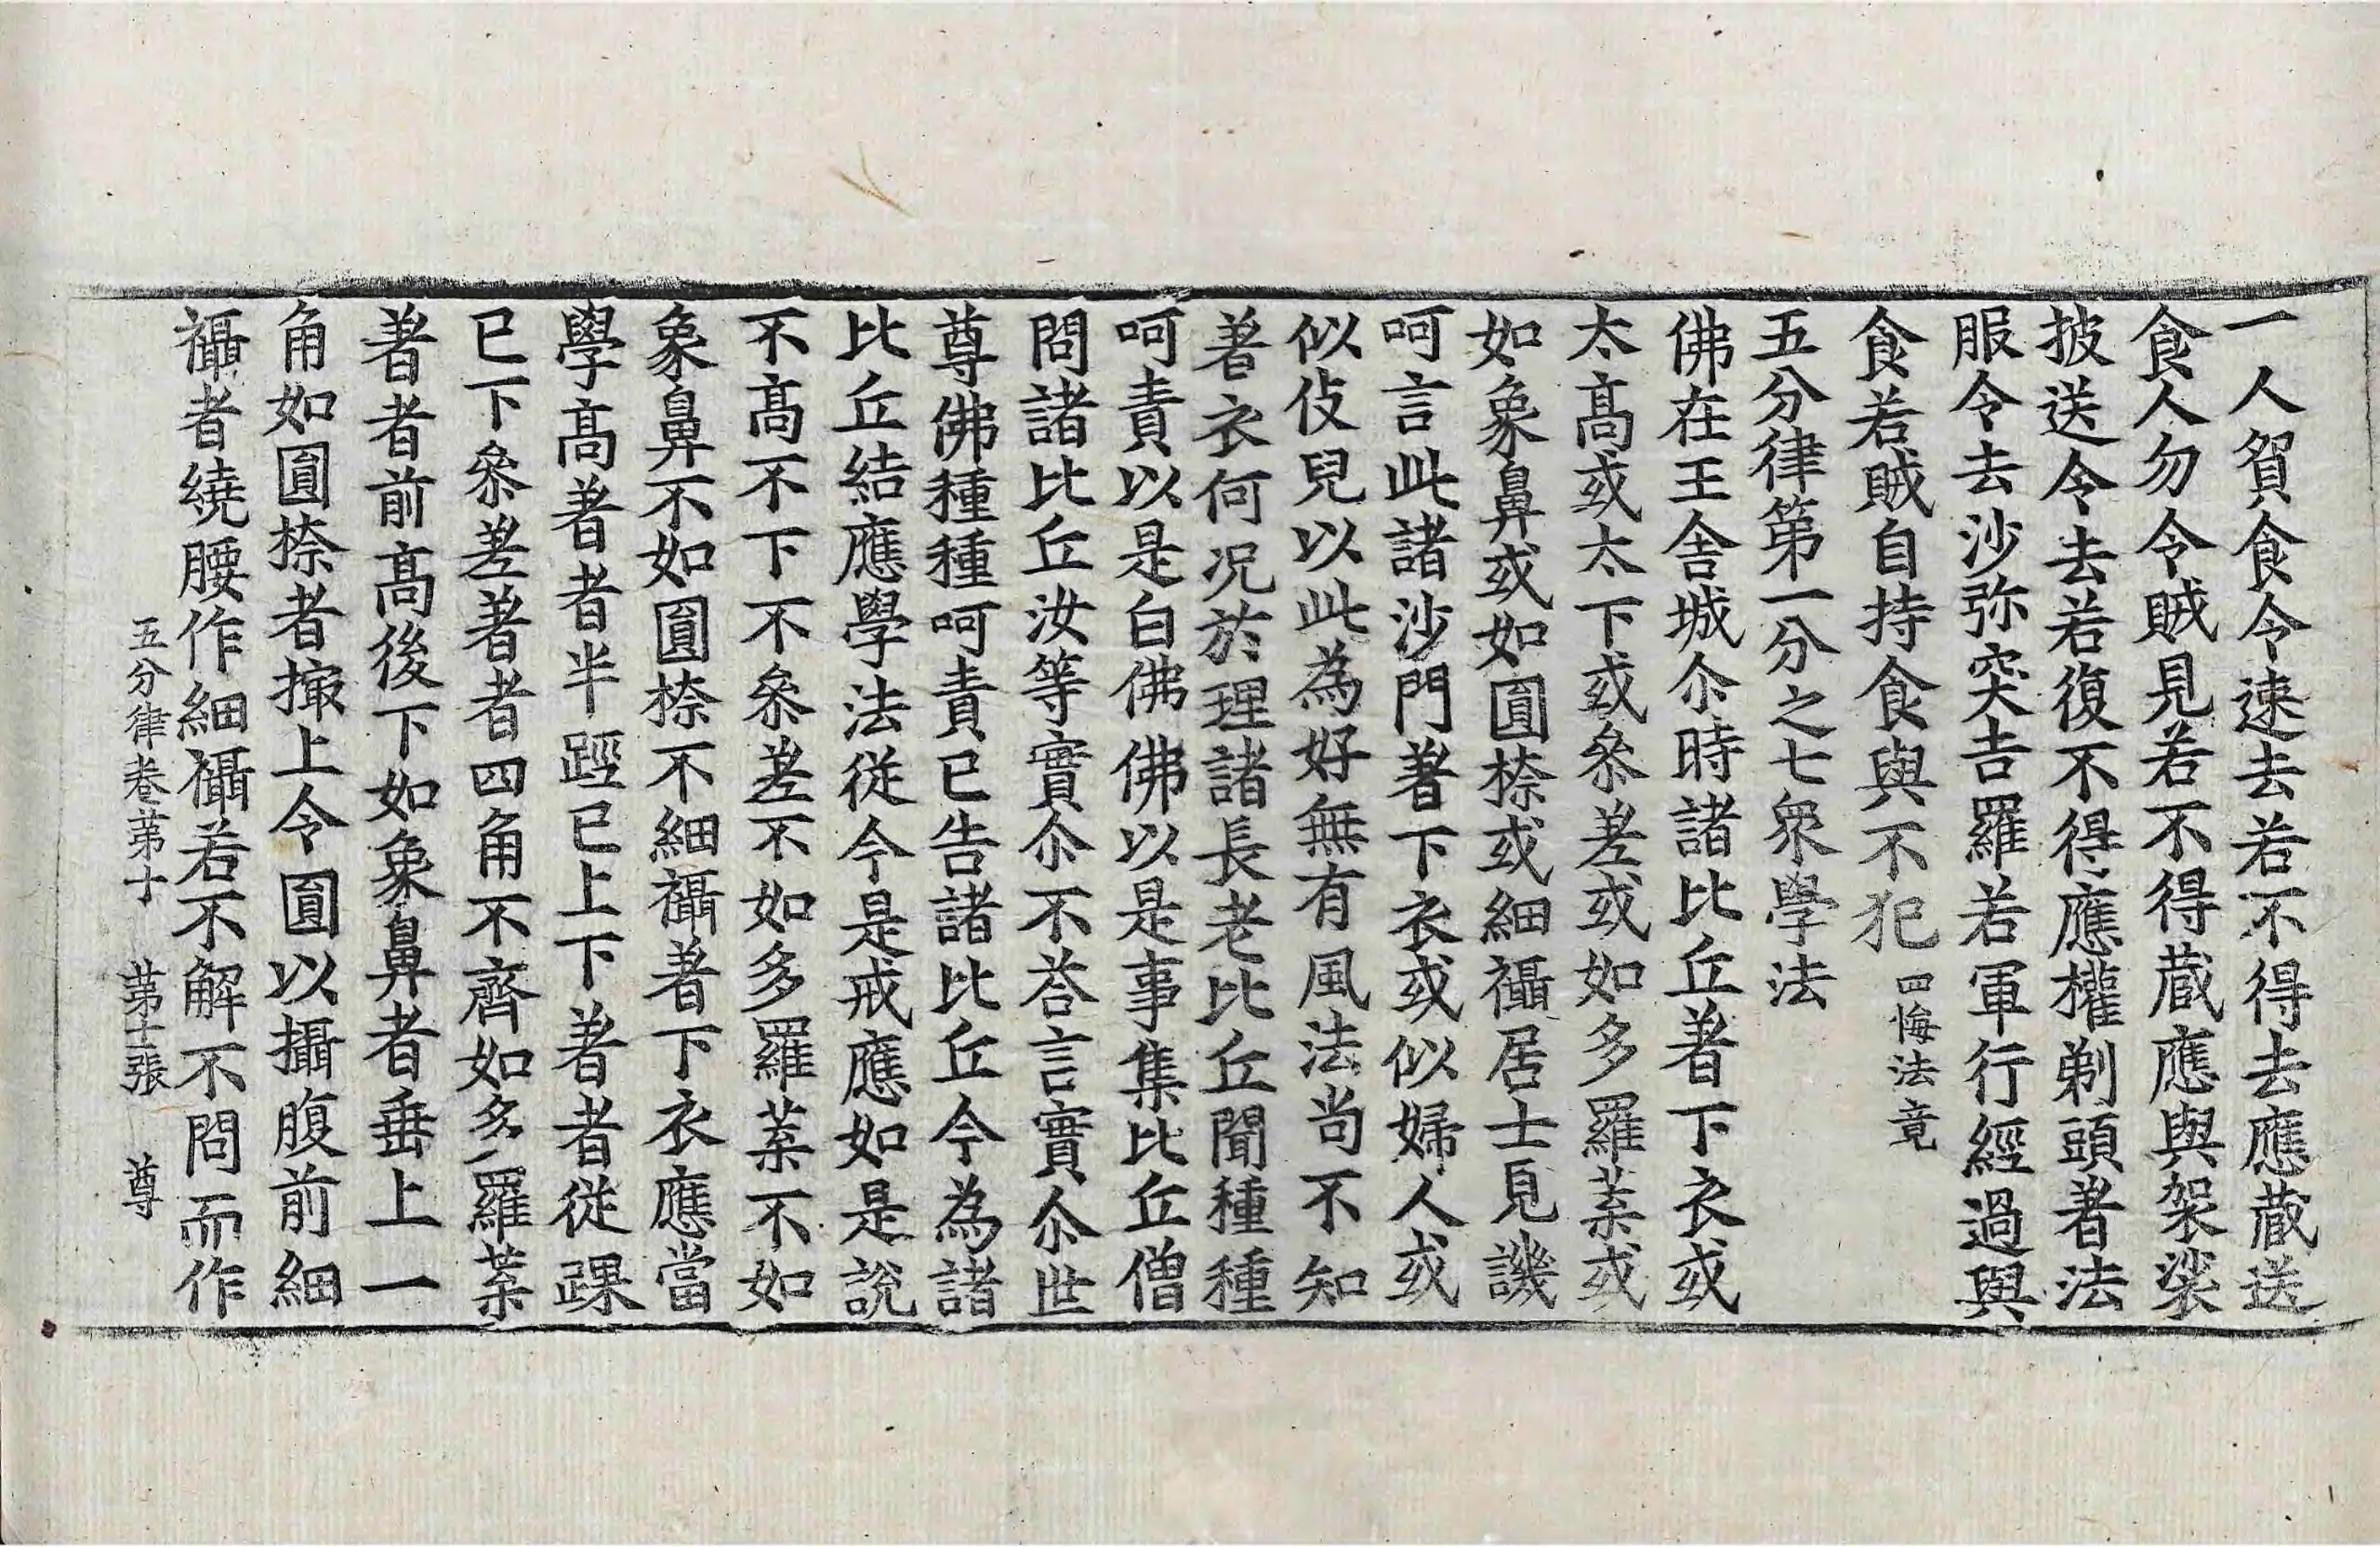 一人賀食令速去若不得去應蔵送
食人勿令賊見若不得蔵應與袈裟
披送令去若復不得應權剃頭著法
服令去沙弥突吉羅若軍行經過與
食若賊自持食與不犯 四悔法竟
五分律第一分之七衆學法
佛在王舎城尒時諸比丘著下衣或
太髙或太下或叅差或如多羅葉或
如象鼻或如圓㮈或細襵居士見譏
呵言此諸沙門著下衣或似婦人或
似伎兒以此為好無有風法尚不知
著衣何况於理諸長老比丘聞種種
呵責以是白佛佛以是事集比丘僧
問諸比丘汝等實尒不荅言實尒世
尊佛種種呵責已告諸比丘今為諸
比丘結應學法從今是戒應如是說
不髙不下不叅差不如多羅葉不如
象鼻不如圓㮈不細襵著下衣應當
學髙著者半踁已上下著者從踝
已下叅差著者四角不齊如多羅葉
著者前髙後下如象鼻者垂上一
角如圓㮈者撮上令圓以攝腹前細
襵者繞腰作細襵若不解不問而作
五分律卷第十 第十張 尊